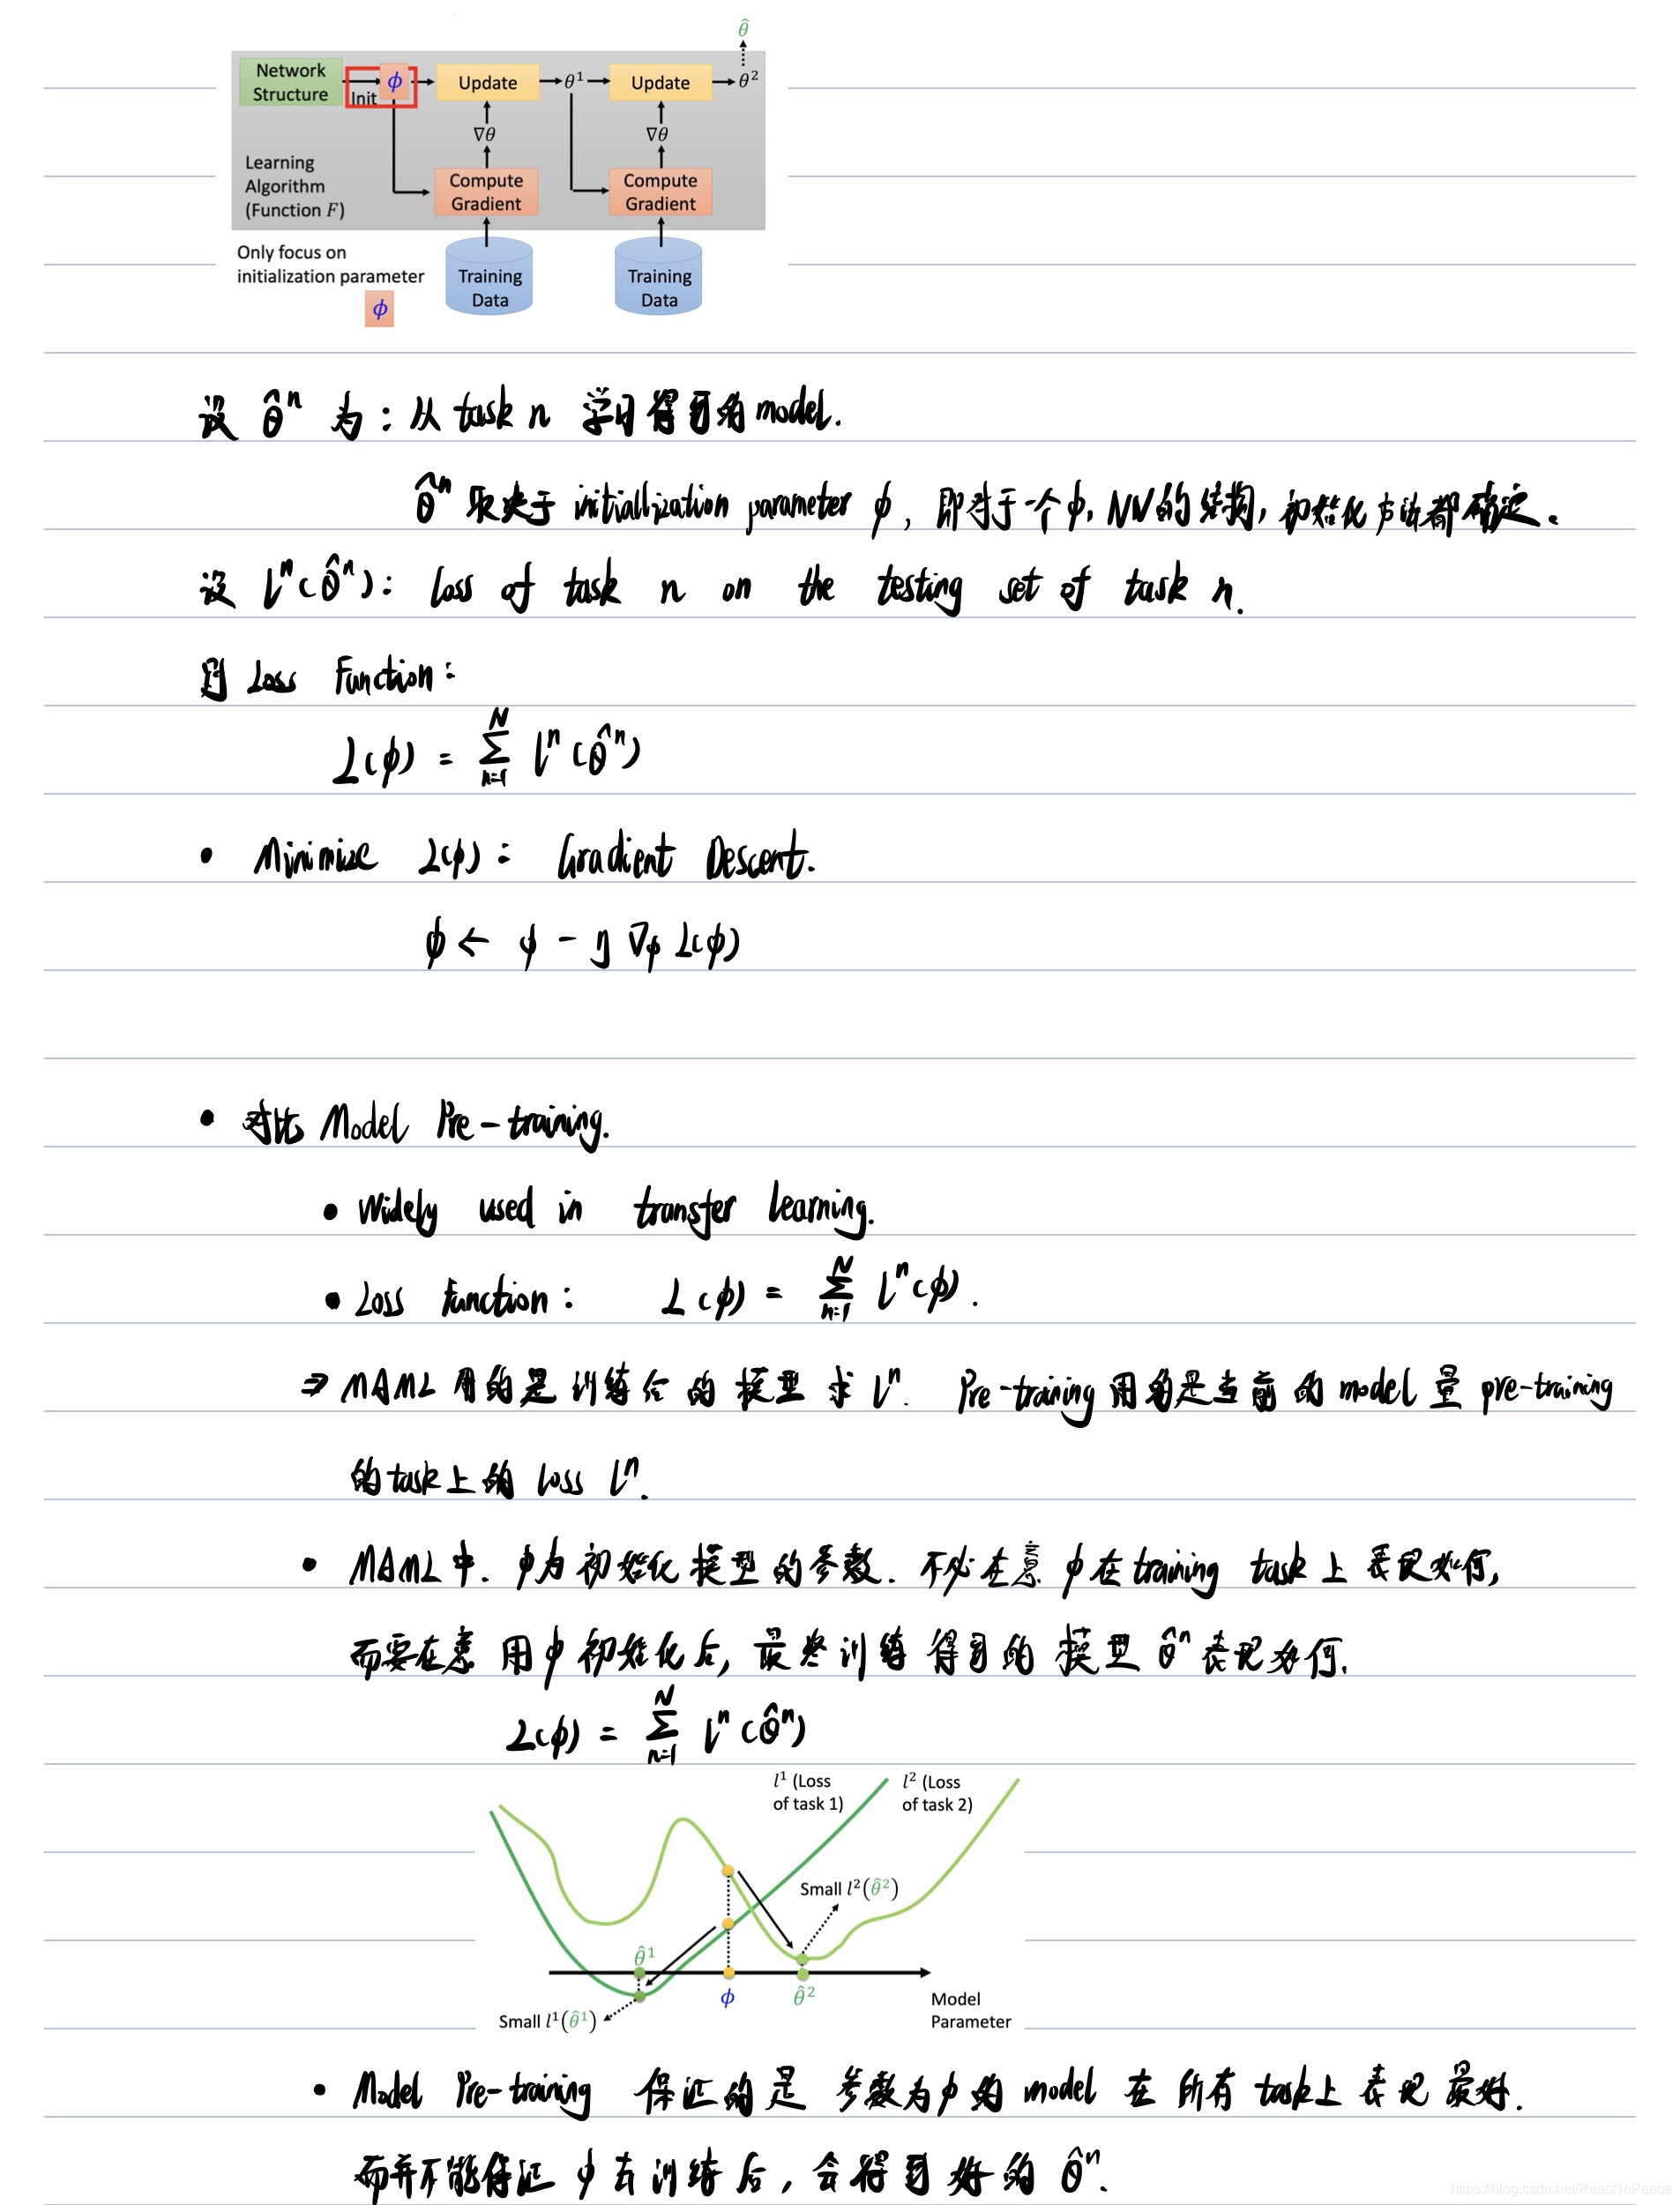 θ̂
Network Structure
Init
ϕ
Update
θ¹
Update
θ²
∇θ
∇θ
Learning Algorithm (Function F)
Compute Gradient
Compute Gradient
Only focus on initialization parameter
ϕ
Training Data
Training Data
设 θ̂ⁿ 为: 从 task n 学习得到的 model.
θ̂ⁿ 取决于 initiallization parameter ϕ, 即对于一个 ϕ, NN的结构, 初始化方法都确定.
设 lⁿ(θ̂ⁿ): loss of task n on the testing set of task n.
则 Loss Function:
L(ϕ) = Σ_{n=1}^{N} lⁿ(θ̂ⁿ)
• Minimize L(ϕ): Gradient Descent.
ϕ ← ϕ - η ∇_ϕ L(ϕ)
• 对比 Model Pre-training.
• Widely used in transfer learning.
• Loss Function: L(ϕ) = Σ_{n=1}^{N} lⁿ(ϕ).
⇒ MAML 用的是训练后的模型求 lⁿ. Pre-training 用的是当前的 model 量 pre-training
的 task 上的 loss lⁿ.
• MAML中. ϕ为初始化模型的参数. 不必在意 ϕ 在 training task 上表现如何,
而要在意 用ϕ初始化后, 最终训练得到的模型 θ̂ⁿ 表现如何.
L(ϕ) = Σ_{n=1}^{N} lⁿ(θ̂ⁿ)
l¹ (Loss of task 1)
l² (Loss of task 2)
Small l²(θ̂²)
θ̂¹
ϕ
θ̂²
Model Parameter
Small l¹(θ̂¹)
• Model Pre-training 保证的是 参数为ϕ的 model 在所有 task上表现最好.
而并不能保证 ϕ去训练后, 会得到好的 θ̂ⁿ.
https://blog.csdn.net/Reast1nPeace